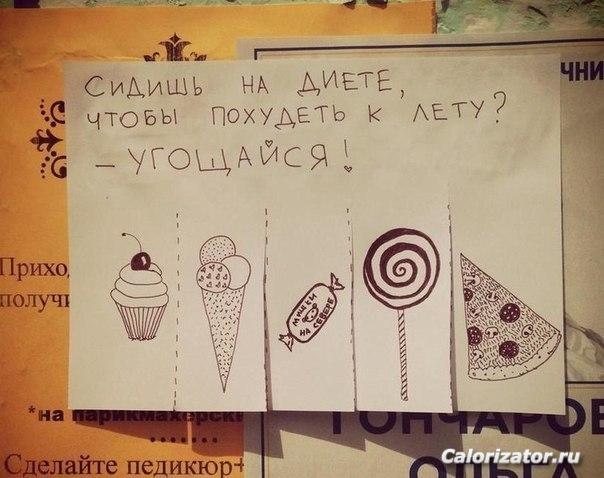 СИДИШЬ НА ДИЕТЕ,
ЧТОБЫ ПОХУДЕТЬ К ЛЕТУ?
– УГОЩАЙСЯ!
МИШКИ
НА СЕВЕРЕ
*на парикмахерск
Сделайте педикюр+
ГОНЧАРОВ
ОЛЬГА
Calorizator.ru